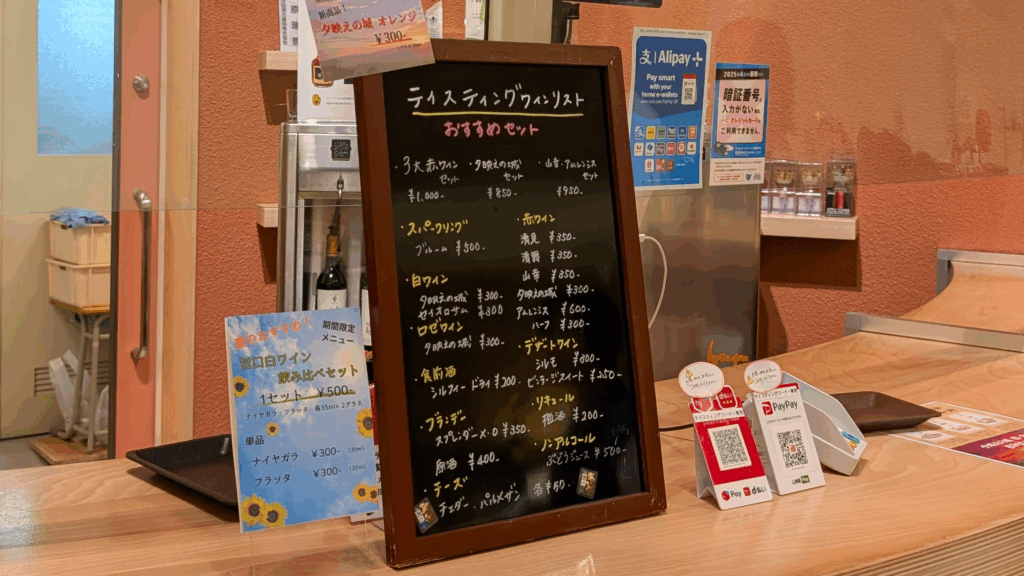 新商品!
夕映えの城 オレンジ
¥300-
ティスティングワインリスト
おすすめセット
・夕映えの城
セット
¥850-
・山幸・アムレンシス
セット
¥950-
3大赤ワイン
セット
¥1,000-
・スパークリング
ブルーム ¥500-
・白ワイン
夕映えの城 ¥300-
¥300
・ロゼワイン
夕映えの城 ¥300-
・食前酒
シルフィー ドライ ¥200-
・ブランデー
¥350-
原酒 ¥400-
・チーズ
チェダー・パルメザン 各¥50-
・赤ワイン
清見 ¥350-
清舞 ¥350-
山幸 ¥350-
夕映えの城 ¥300-
アムレンシス ¥600-
ハーフ ¥300-
・デザートワイン
¥800-
¥250-
・リキュール
梅酒 ¥200-
・ノンアルコール
ぶどうジュース ¥500-
期間限定
メニュー
甘口白ワイン
飲み比べセット
1セット ¥500-
ナイヤガラ・フラッタ 各35ml×2グラス
単品
ナイヤガラ ¥300- (35ml)
フラッタ ¥300- (35ml)
支 Alipay+
Pay smart
with your
home e-wallets
暗証番号の
入力がない
ICクレジットカードは
ご利用できません。
d払い
PayPay
PayPay d払い
LINE Pay